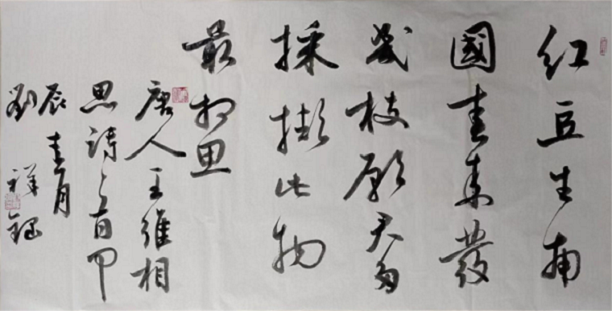 红豆生南
國春来發
幾枝願君多
採擷此物
最相思
唐人王維相
思詩一首甲
辰春月
劉祥